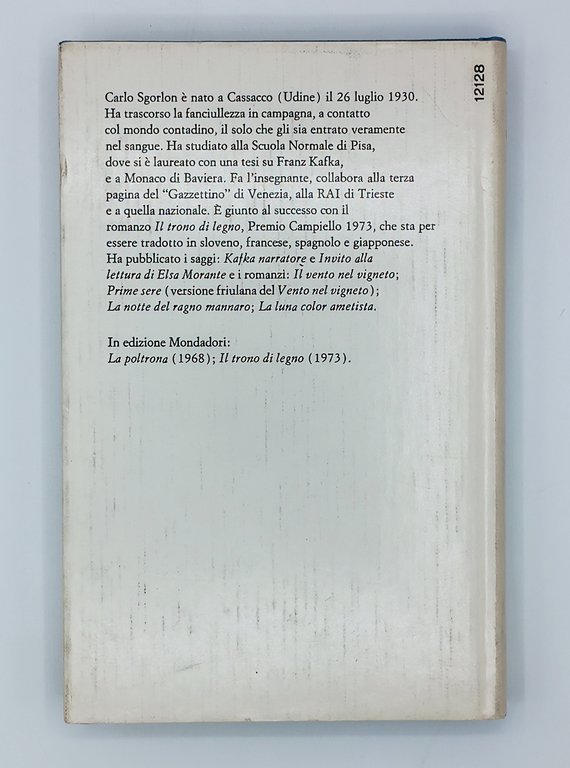 Carlo Sgorlon è nato a Cassacco (Udine) il 26 luglio 1930.
Ha trascorso la fanciullezza in campagna, a contatto
col mondo contadino, il solo che gli sia entrato veramente
nel sangue. Ha studiato alla Scuola Normale di Pisa,
dove si è laureato con una tesi su Franz Kafka,
e a Monaco di Baviera. Fa l'insegnante, collabora alla terza
pagina del "Gazzettino" di Venezia, alla RAI di Trieste
e a quella nazionale. È giunto al successo con il
romanzo Il trono di legno, Premio Campiello 1973, che sta per
essere tradotto in sloveno, francese, spagnolo e giapponese.
Ha pubblicato i saggi: Kafka narratore e Invito alla
lettura di Elsa Morante e i romanzi: Il vento nel vigneto;
Prime sere (versione friulana del Vento nel vigneto);
La notte del ragno mannaro; La luna color ametista.
In edizione Mondadori:
La poltrona (1968); Il trono di legno (1973).
12128